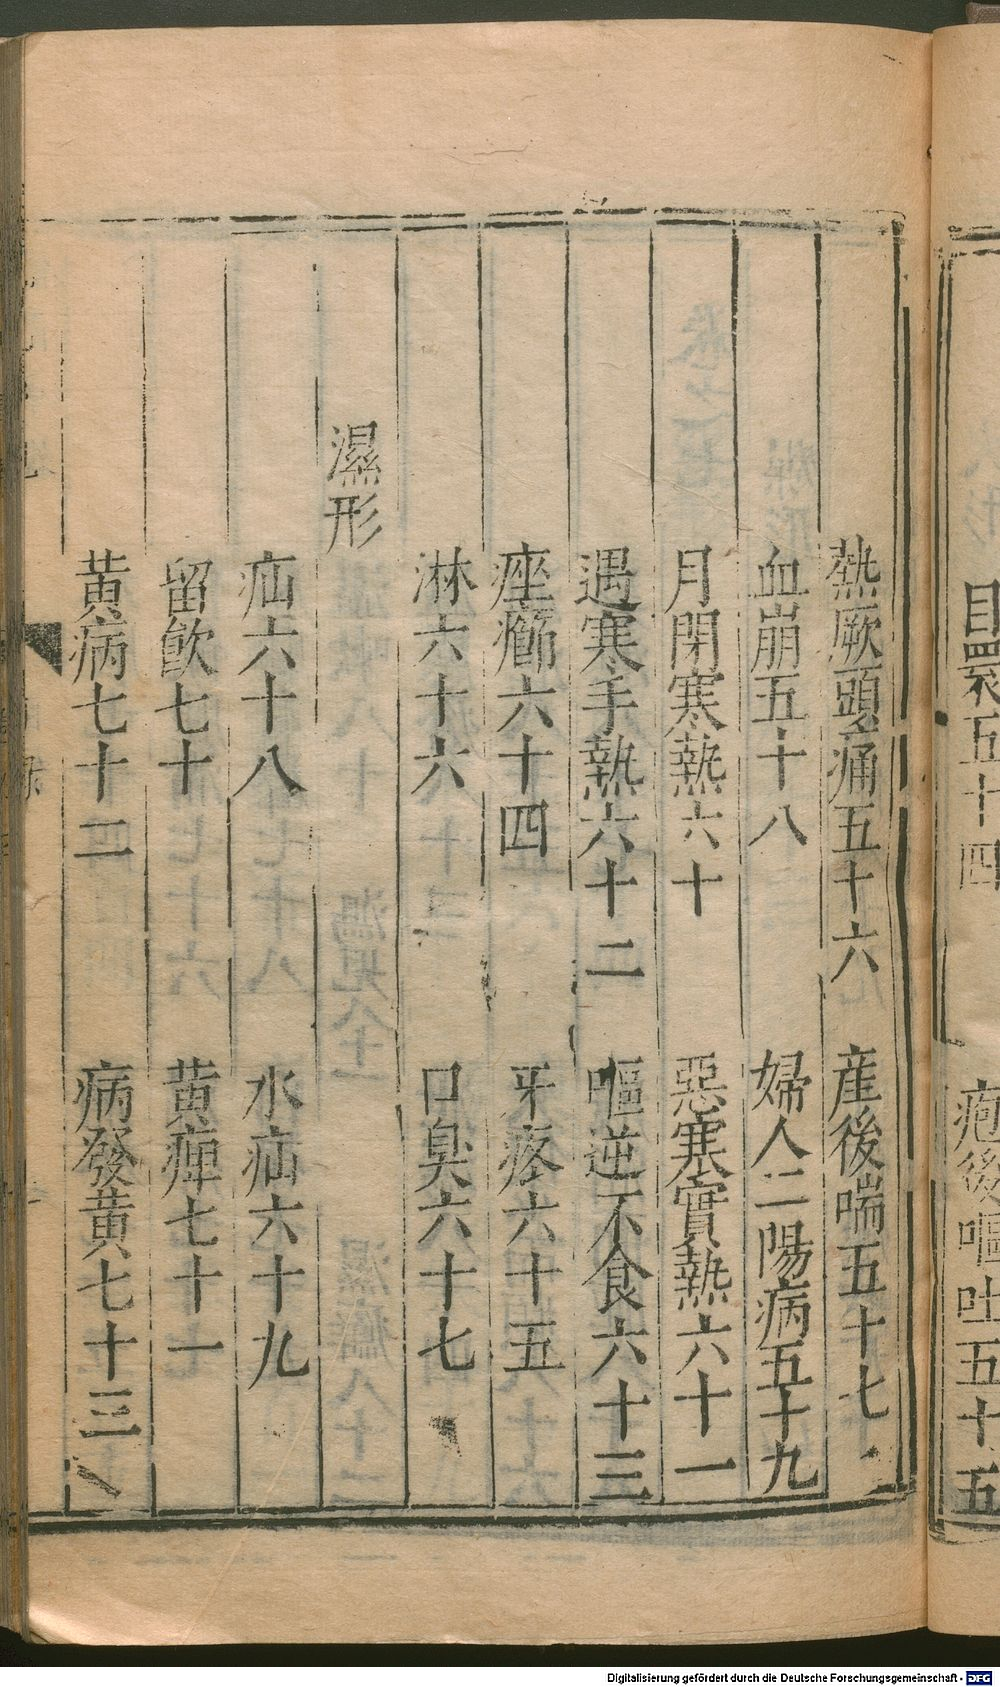 目眾五十四
疱後嘔吐五十五
熱厥頭痛五十六
産後喘五十七
血崩五十八
婦人二陽病五十九
月閉寒熱六十
惡寒實熱六十一
遇寒手熱六十二
嘔逆不食六十三
痤癤六十四
牙疼六十五
淋六十六
口臭六十七
濕形
疝六十八
水疝六十九
留飲七十
黄痺七十一
黄病七十二
病發黄七十三
Digitalisierung gefördert durch die Deutsche Forschungsgemeinschaft - DFG